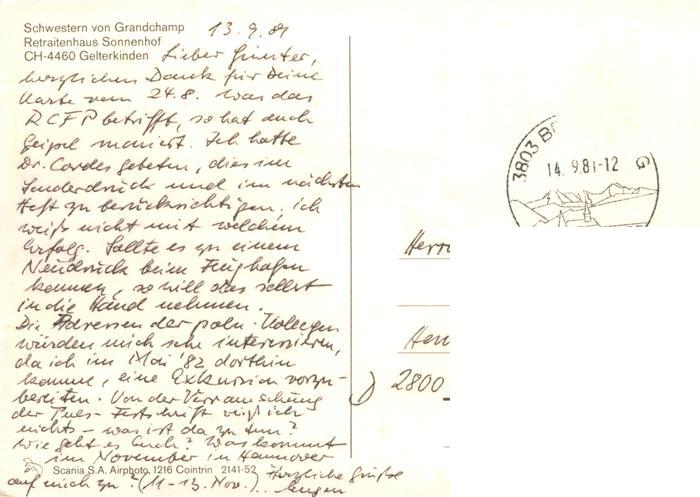 Schwestern von Grandchamp
Retraitenhaus Sonnenhof
CH-4460 Gelterkinden
13.9.81
Lieber Günter,
herzlichen Dank für Deine
Karte vom 24.8. was das
RCFP betrifft, so hat auch
moniert. Ich hatte
Dr. Cordes gebeten, dies im
Sonderdruck und im nächsten
Heft zu berücksichtigen, ich
weiß nicht mit welchem
Erfolg. Sollte es zu einem
Neudruck beim
kommen, so will das selbst
in die Hand nehmen.
Die Adressen der poln. Kollegen
würden mich sehr interessieren,
da ich im Mai '82 dorthin
komme, eine Exkursion vorzu-
bereiten. Von der
der Festschrift ich
nichts - was ist da zu tun?
Wie geht es Euch? Was kommt
im November in Hannover
auf mich zu? (11-13. Nov.)..
Herzliche Grüße
3803 B
14.9.81-12
G
Herrn
2800
Scania S.A. Airphoto, 1216 Cointrin 2141-52